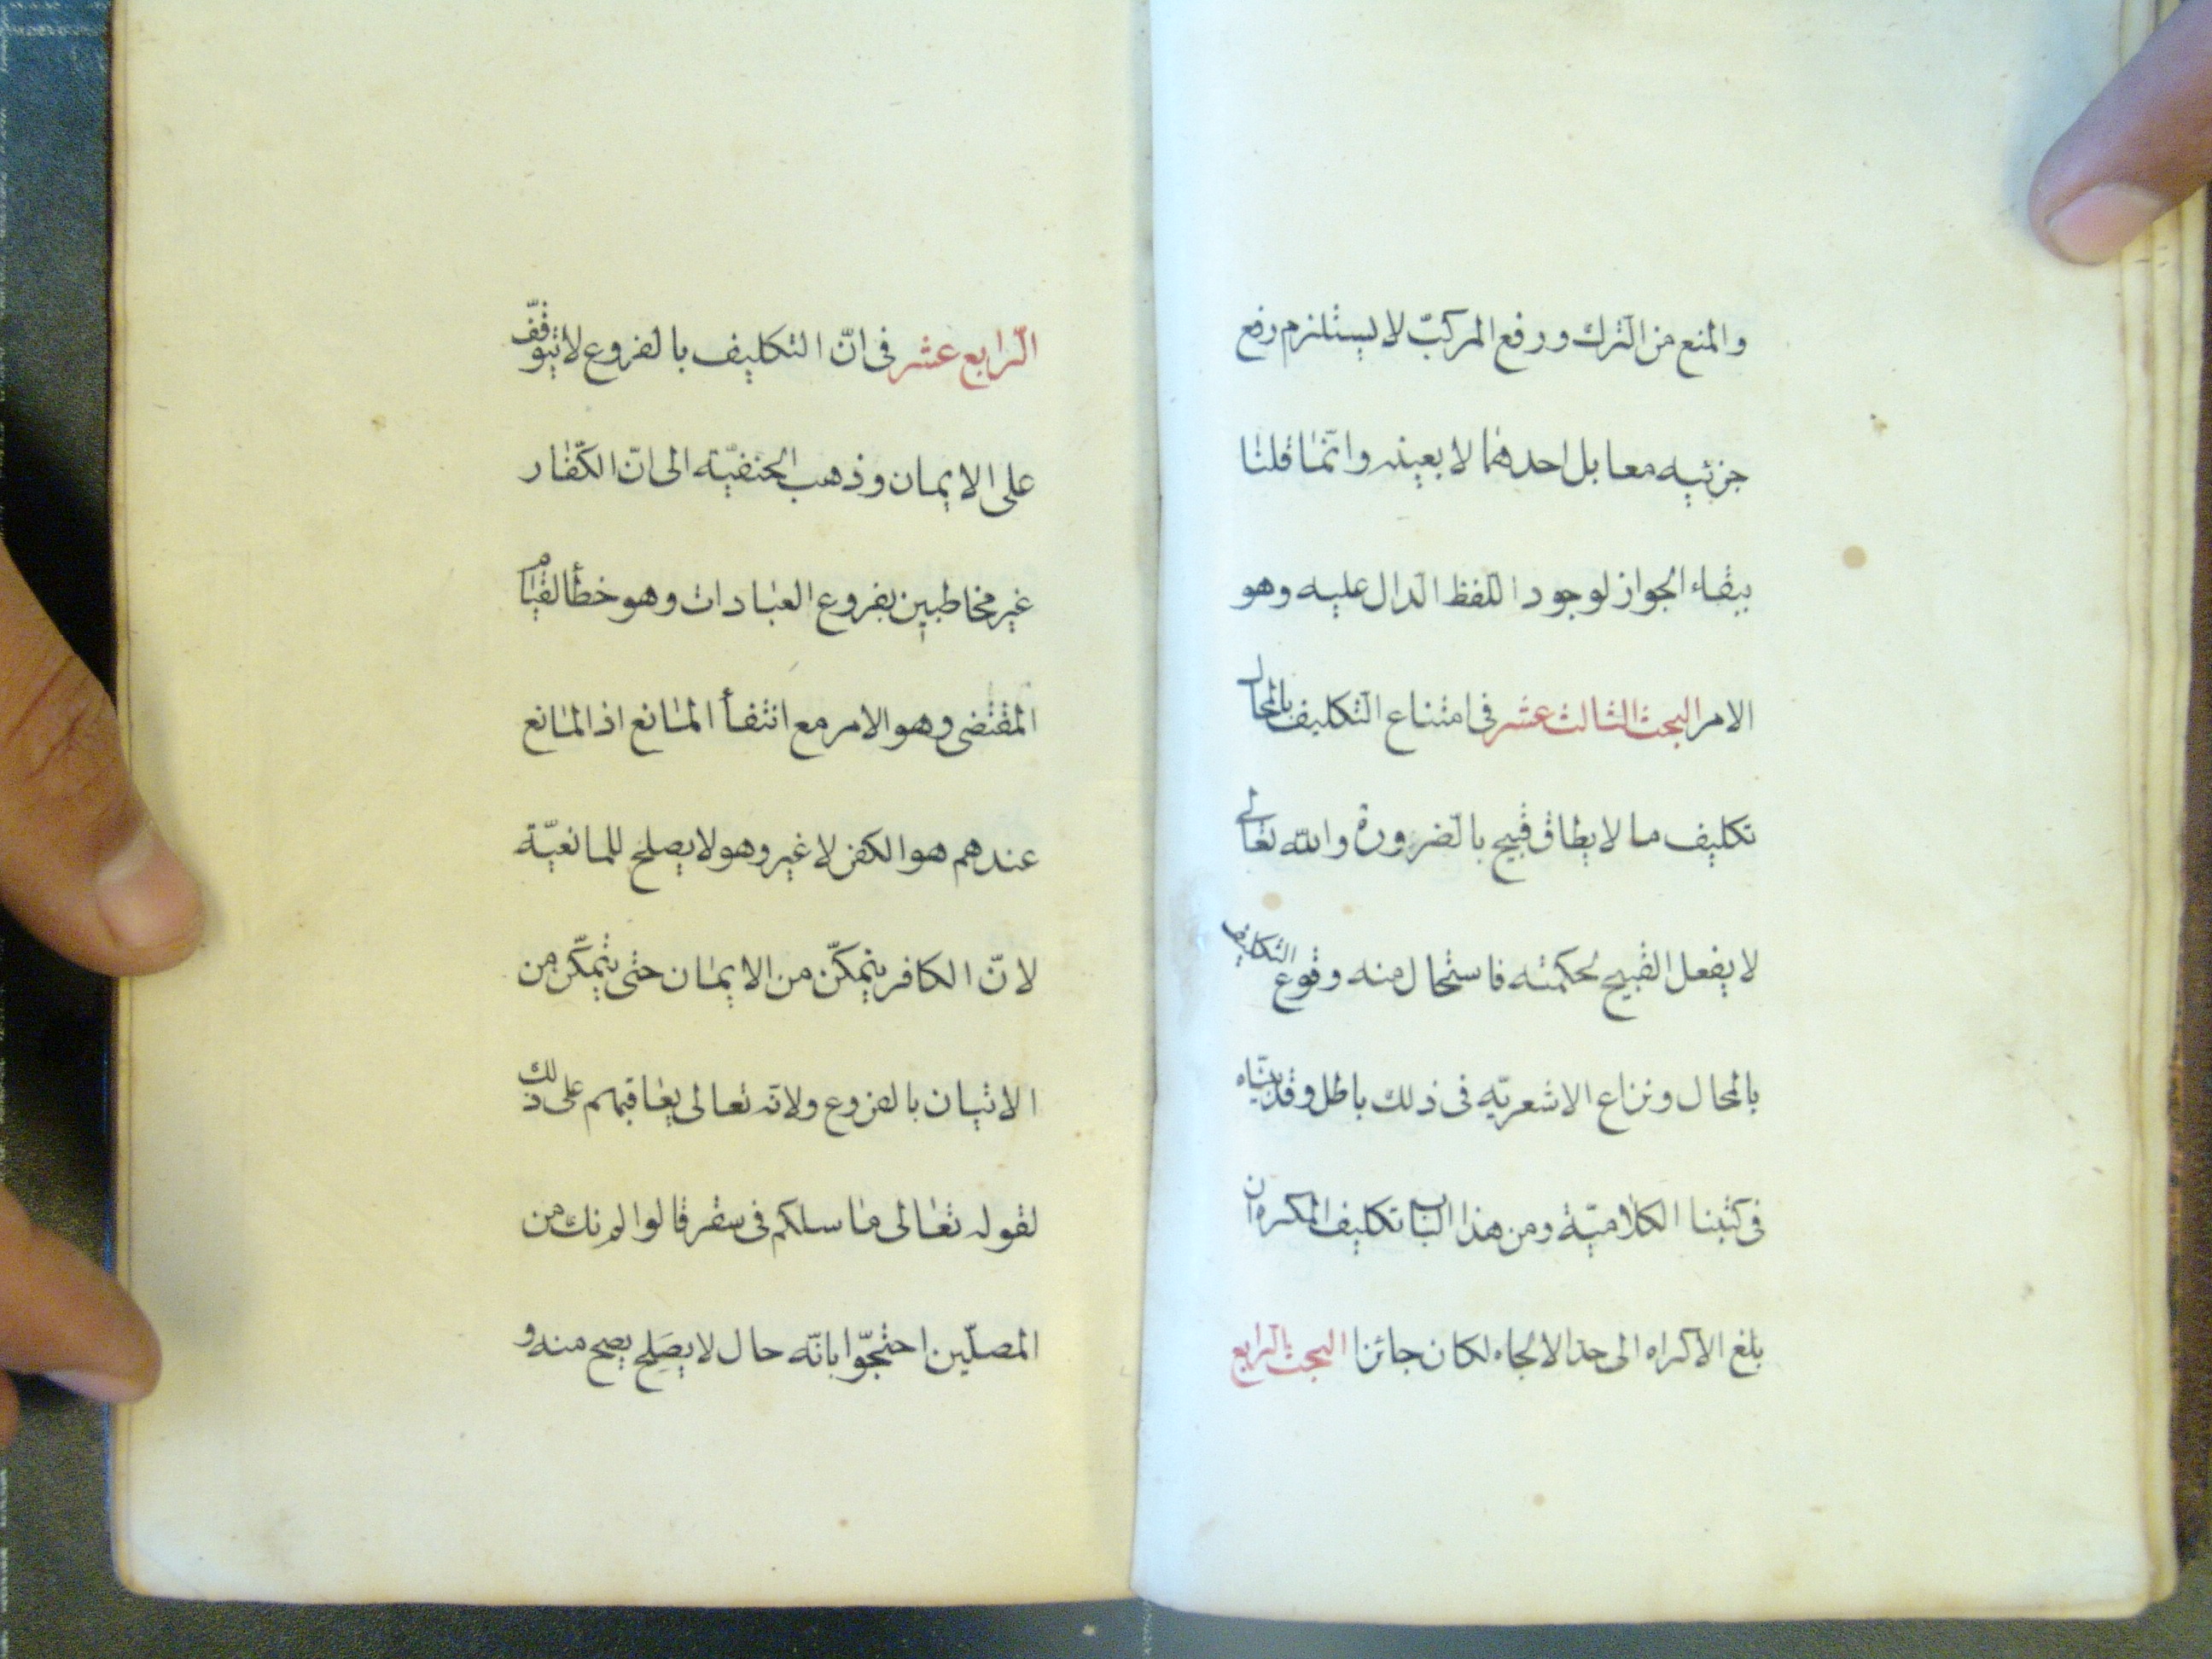 والمنع من الترك ورفع المركّب لا يستلزم رفع
جزئيه معا بل احدهما لا بعينه وانّما قلنا
ببقاء الجواز لوجود اللفظ الدال عليه وهو
الامر البحث الثالث عشر فى امتناع التكليف بالمحال
تكليف ما لا يطاق قبيح بالضرورة والله تعالى
لا يفعل القبيح لحكمته فاستحال منه وقوع التكليف
بالمحال ونزاع الاشعريّه فى ذلك باطل وقد بيّناه
فى كتبنا الكلاميّة ومن هذا الباب تكليف المكره ان
بلغ الاكراه الى حدّ الالجاء لكان جائزا البحث الرابع
الرّابع عشر فى انّ التكليف بالفروع لا يتوقّف
على الايمان وذهب الحنفيّة الى انّ الكفّار
غير مخاطبين بفروع العبادات وهو خطأ لقيام
المقتضى وهو الامر مع انتفأ المانع اذ المانع
عندهم هو الكفر لا غير وهو لا يصلح للمانعيّة
لانّ الكافر يتمكّن من الايمان حتى يتمكّن من
الاتيان بالفروع ولانّه تعالى يعاقبهم على ذلك
لقوله تعالى ما سلككم فى سقر قالوا لم نك من
المصلّين احتجّوا بانّه حال لا يصلح يصح منه و